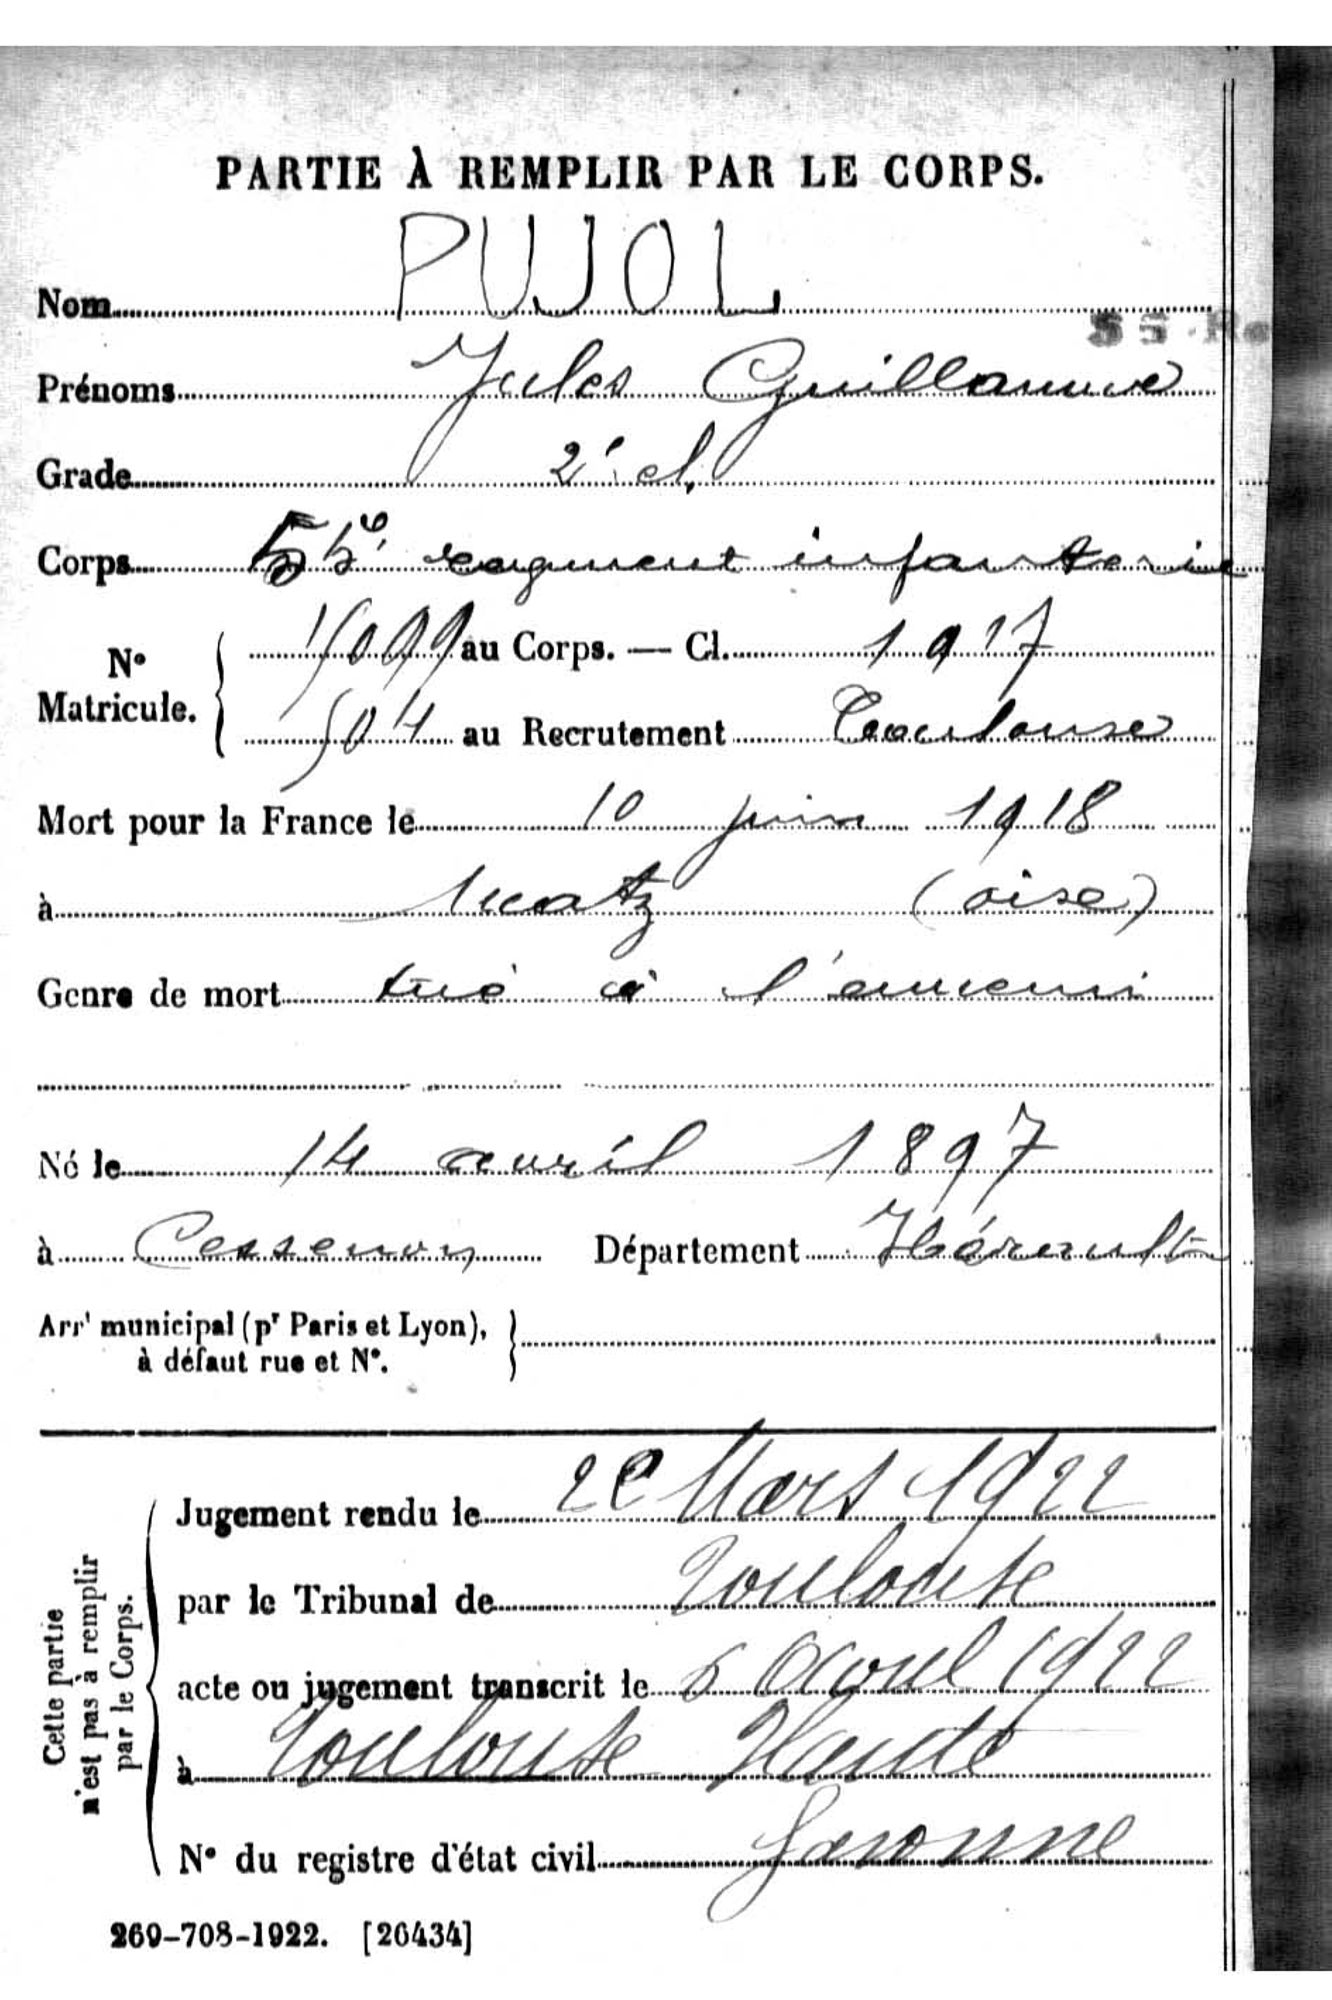 PARTIE À REMPLIR PAR LE CORPS.
Nom PUJOL
Prénoms Jules Guillaume
Grade 2e cl.
Corps 55e regiment infanterie
No Matricule. 15099 au Corps. — Cl. 1917
504 au Recrutement Toulouse
Mort pour la France le 10 juin 1918
à Matz (oise)
Genre de mort tué à l'ennemi
Né le 14 avril 1897
à Cessenon Département Hérault
Arrt municipal (pr Paris et Lyon),
à défaut rue et No.
Cette partie
n'est pas à remplir
par le Corps.
Jugement rendu le Mars 1922
par le Tribunal de Toulouse
acte ou jugement transcrit le Avril 1922
à Toulouse Haute
No du registre d'état civil Garonne
269-708-1922. [26434]